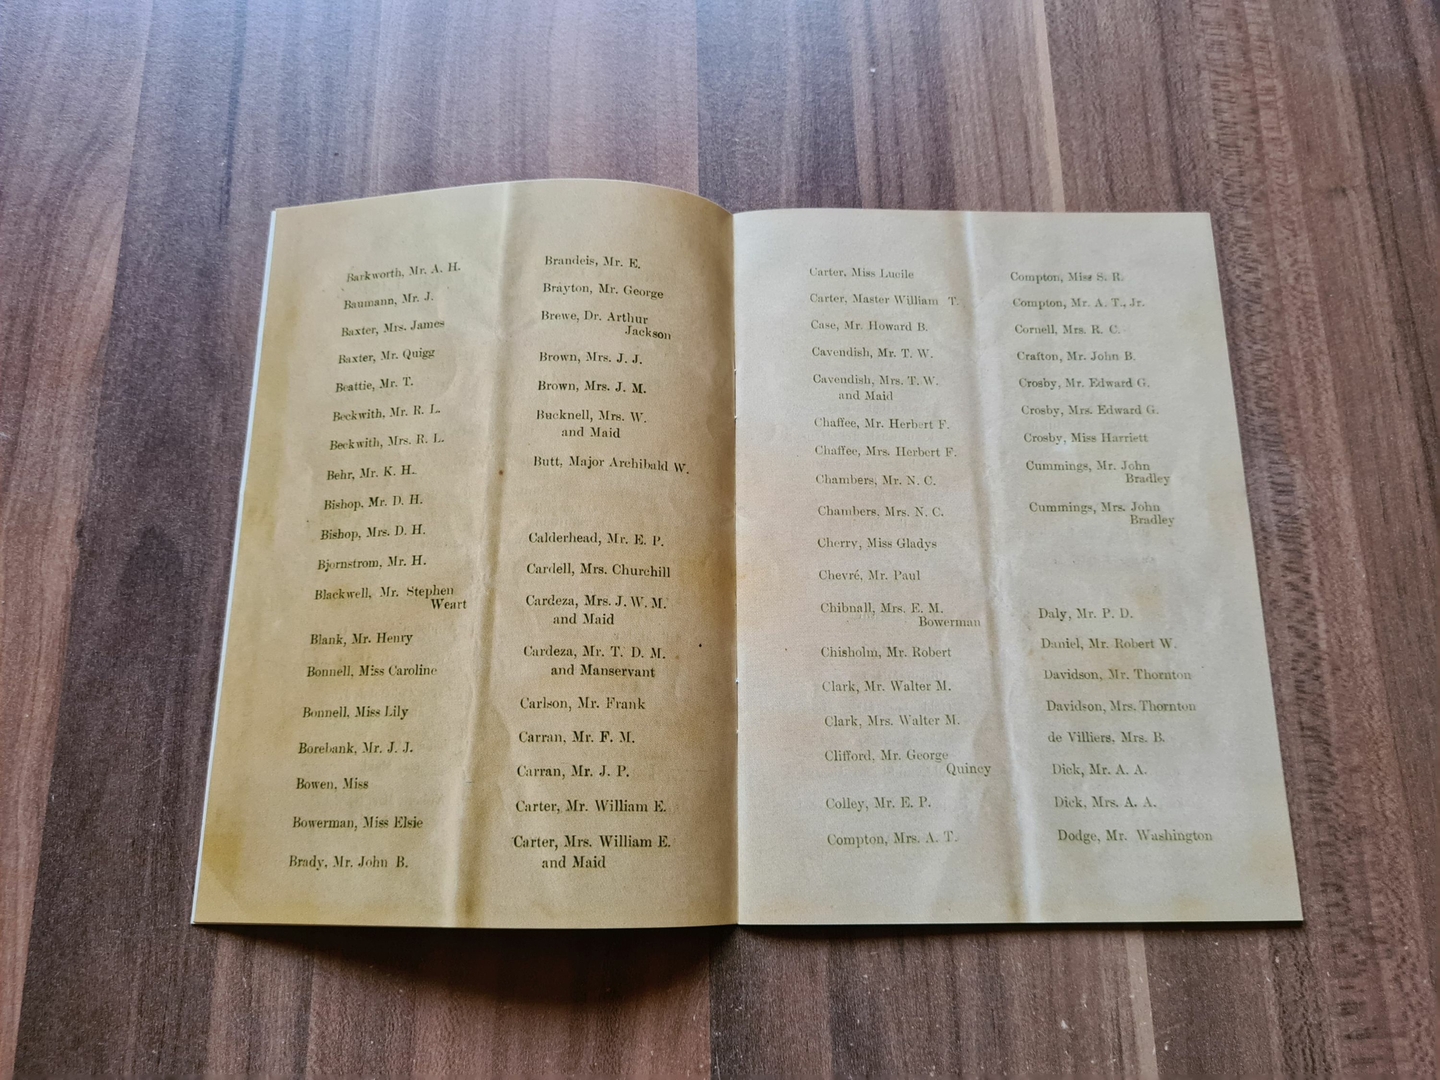 Barkworth, Mr. A. H.
Baumann, Mr. J.
Baxter, Mrs. James
Baxter, Mr. Quigg
Beattie, Mr. T.
Beckwith, Mr. R. L.
Beckwith, Mrs. R. L.
Behr, Mr. K. H.
Bishop, Mr. D. H.
Bishop, Mrs. D. H.
Bjornstrom, Mr. H.
Blackwell, Mr. Stephen
Weart
Blank, Mr. Henry
Bonnell, Miss Caroline
Bonnell, Miss Lily
Borebank, Mr. J. J.
Bowen, Miss
Bowerman, Miss Elsie
Brady, Mr. John B.
Brandeis, Mr. E.
Brayton, Mr. George
Brewe, Dr. Arthur
Jackson
Brown, Mrs. J. J.
Brown, Mrs. J. M.
Bucknell, Mrs. W.
and Maid
Butt, Major Archibald W.
Calderhead, Mr. E. P.
Cardell, Mrs. Churchill
Cardeza, Mrs. J. W. M.
and Maid
Cardeza, Mr. T. D. M.
and Manservant
Carlson, Mr. Frank
Carran, Mr. F. M.
Carran, Mr. J. P.
Carter, Mr. William E.
Carter, Mrs. William E.
and Maid
Carter, Miss Lucile
Carter, Master William T.
Case, Mr. Howard B.
Cavendish, Mr. T. W.
Cavendish, Mrs. T. W.
and Maid
Chaffee, Mr. Herbert F.
Chaffee, Mrs. Herbert F.
Chambers, Mr. N. C.
Chambers, Mrs. N. C.
Cherry, Miss Gladys
Chevré, Mr. Paul
Chibnall, Mrs. E. M.
Bowerman
Chisholm, Mr. Robert
Clark, Mr. Walter M.
Clark, Mrs. Walter M.
Clifford, Mr. George
Quincy
Colley, Mr. E. P.
Compton, Mrs. A. T.
Compton, Miss S. R.
Compton, Mr. A. T., Jr.
Cornell, Mrs. R. C.
Crafton, Mr. John B.
Crosby, Mr. Edward G.
Crosby, Mrs. Edward G.
Crosby, Miss Harriett
Cummings, Mr. John
Bradley
Cummings, Mrs. John
Bradley
Daly, Mr. P. D.
Daniel, Mr. Robert W.
Davidson, Mr. Thornton
Davidson, Mrs. Thornton
de Villiers, Mrs. B.
Dick, Mr. A. A.
Dick, Mrs. A. A.
Dodge, Mr. Washington